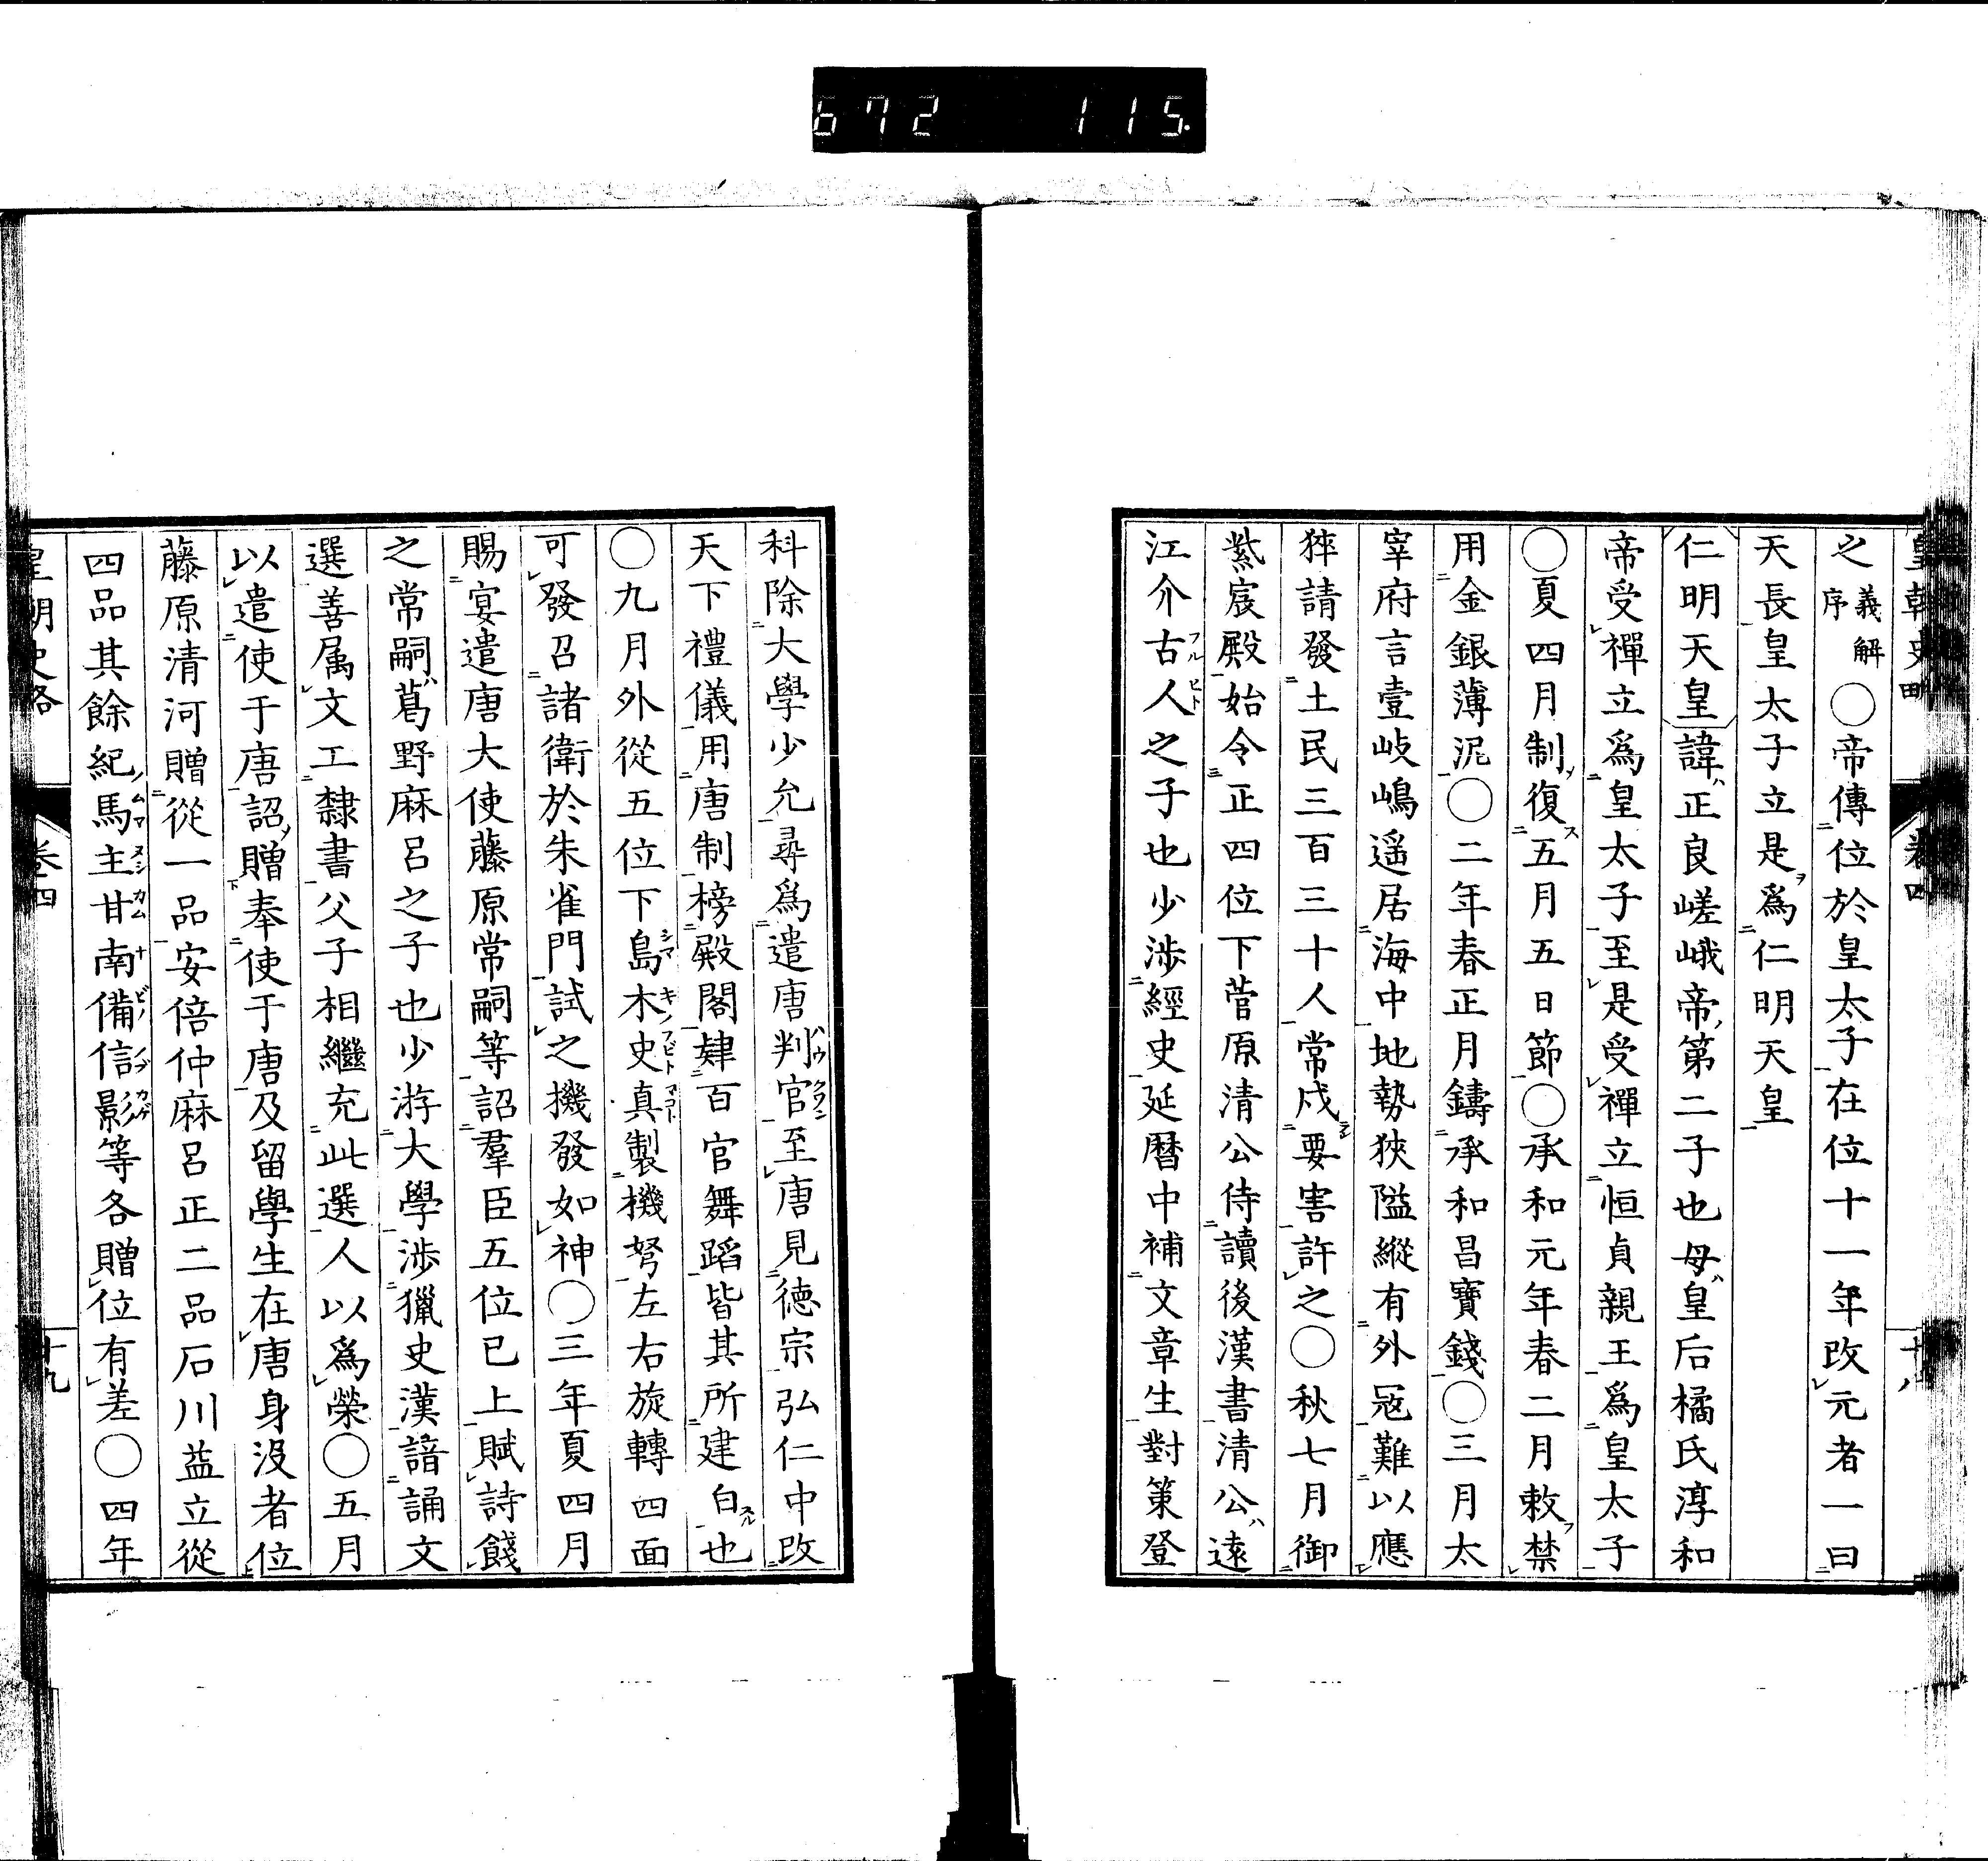 672 115
皇朝史略 卷四 十八
之義解序○帝傳位於皇太子在位十一年改元者一曰
天長皇太子立是爲仁明天皇
仁明天皇諱正良嵯峨帝第二子也母皇后橘氏淳和
帝受禪立爲皇太子至是受禪立恒貞親王爲皇太子
○夏四月制復五月五日節○承和元年春二月敕禁
用金銀薄泥○二年春正月鑄承和昌寶錢○三月太
宰府言壹岐嶋遥居海中地勢狹隘縱有外寇難以應
猝請發土民三百三十人常戍要害許之○秋七月御
紫宸殿始令正四位下菅原清公侍讀後漢書清公遠
江介古人之子也少涉經史延暦中補文章生對策登
科除大學少允尋爲遣唐判官至唐見德宗弘仁中改
天下禮儀用唐制榜殿閣肄百官舞蹈皆其所建白也
○九月外從五位下島木史真製機弩左右旋轉四面
可發召諸衛於朱雀門試之機發如神○三年夏四月
賜宴遣唐大使藤原常嗣等詔羣臣五位已上賦詩餞
之常嗣葛野麻呂之子也少游大學涉獵史漢諳誦文
選善属文工隸書父子相繼充此選人以爲榮○五月
以遣使于唐詔贈奉使于唐及留學生在唐身沒者位
藤原清河贈從一品安倍仲麻呂正二品石川益立從
四品其餘紀馬主甘南備信影等各贈位有差○四年
皇朝史略 卷四 十九